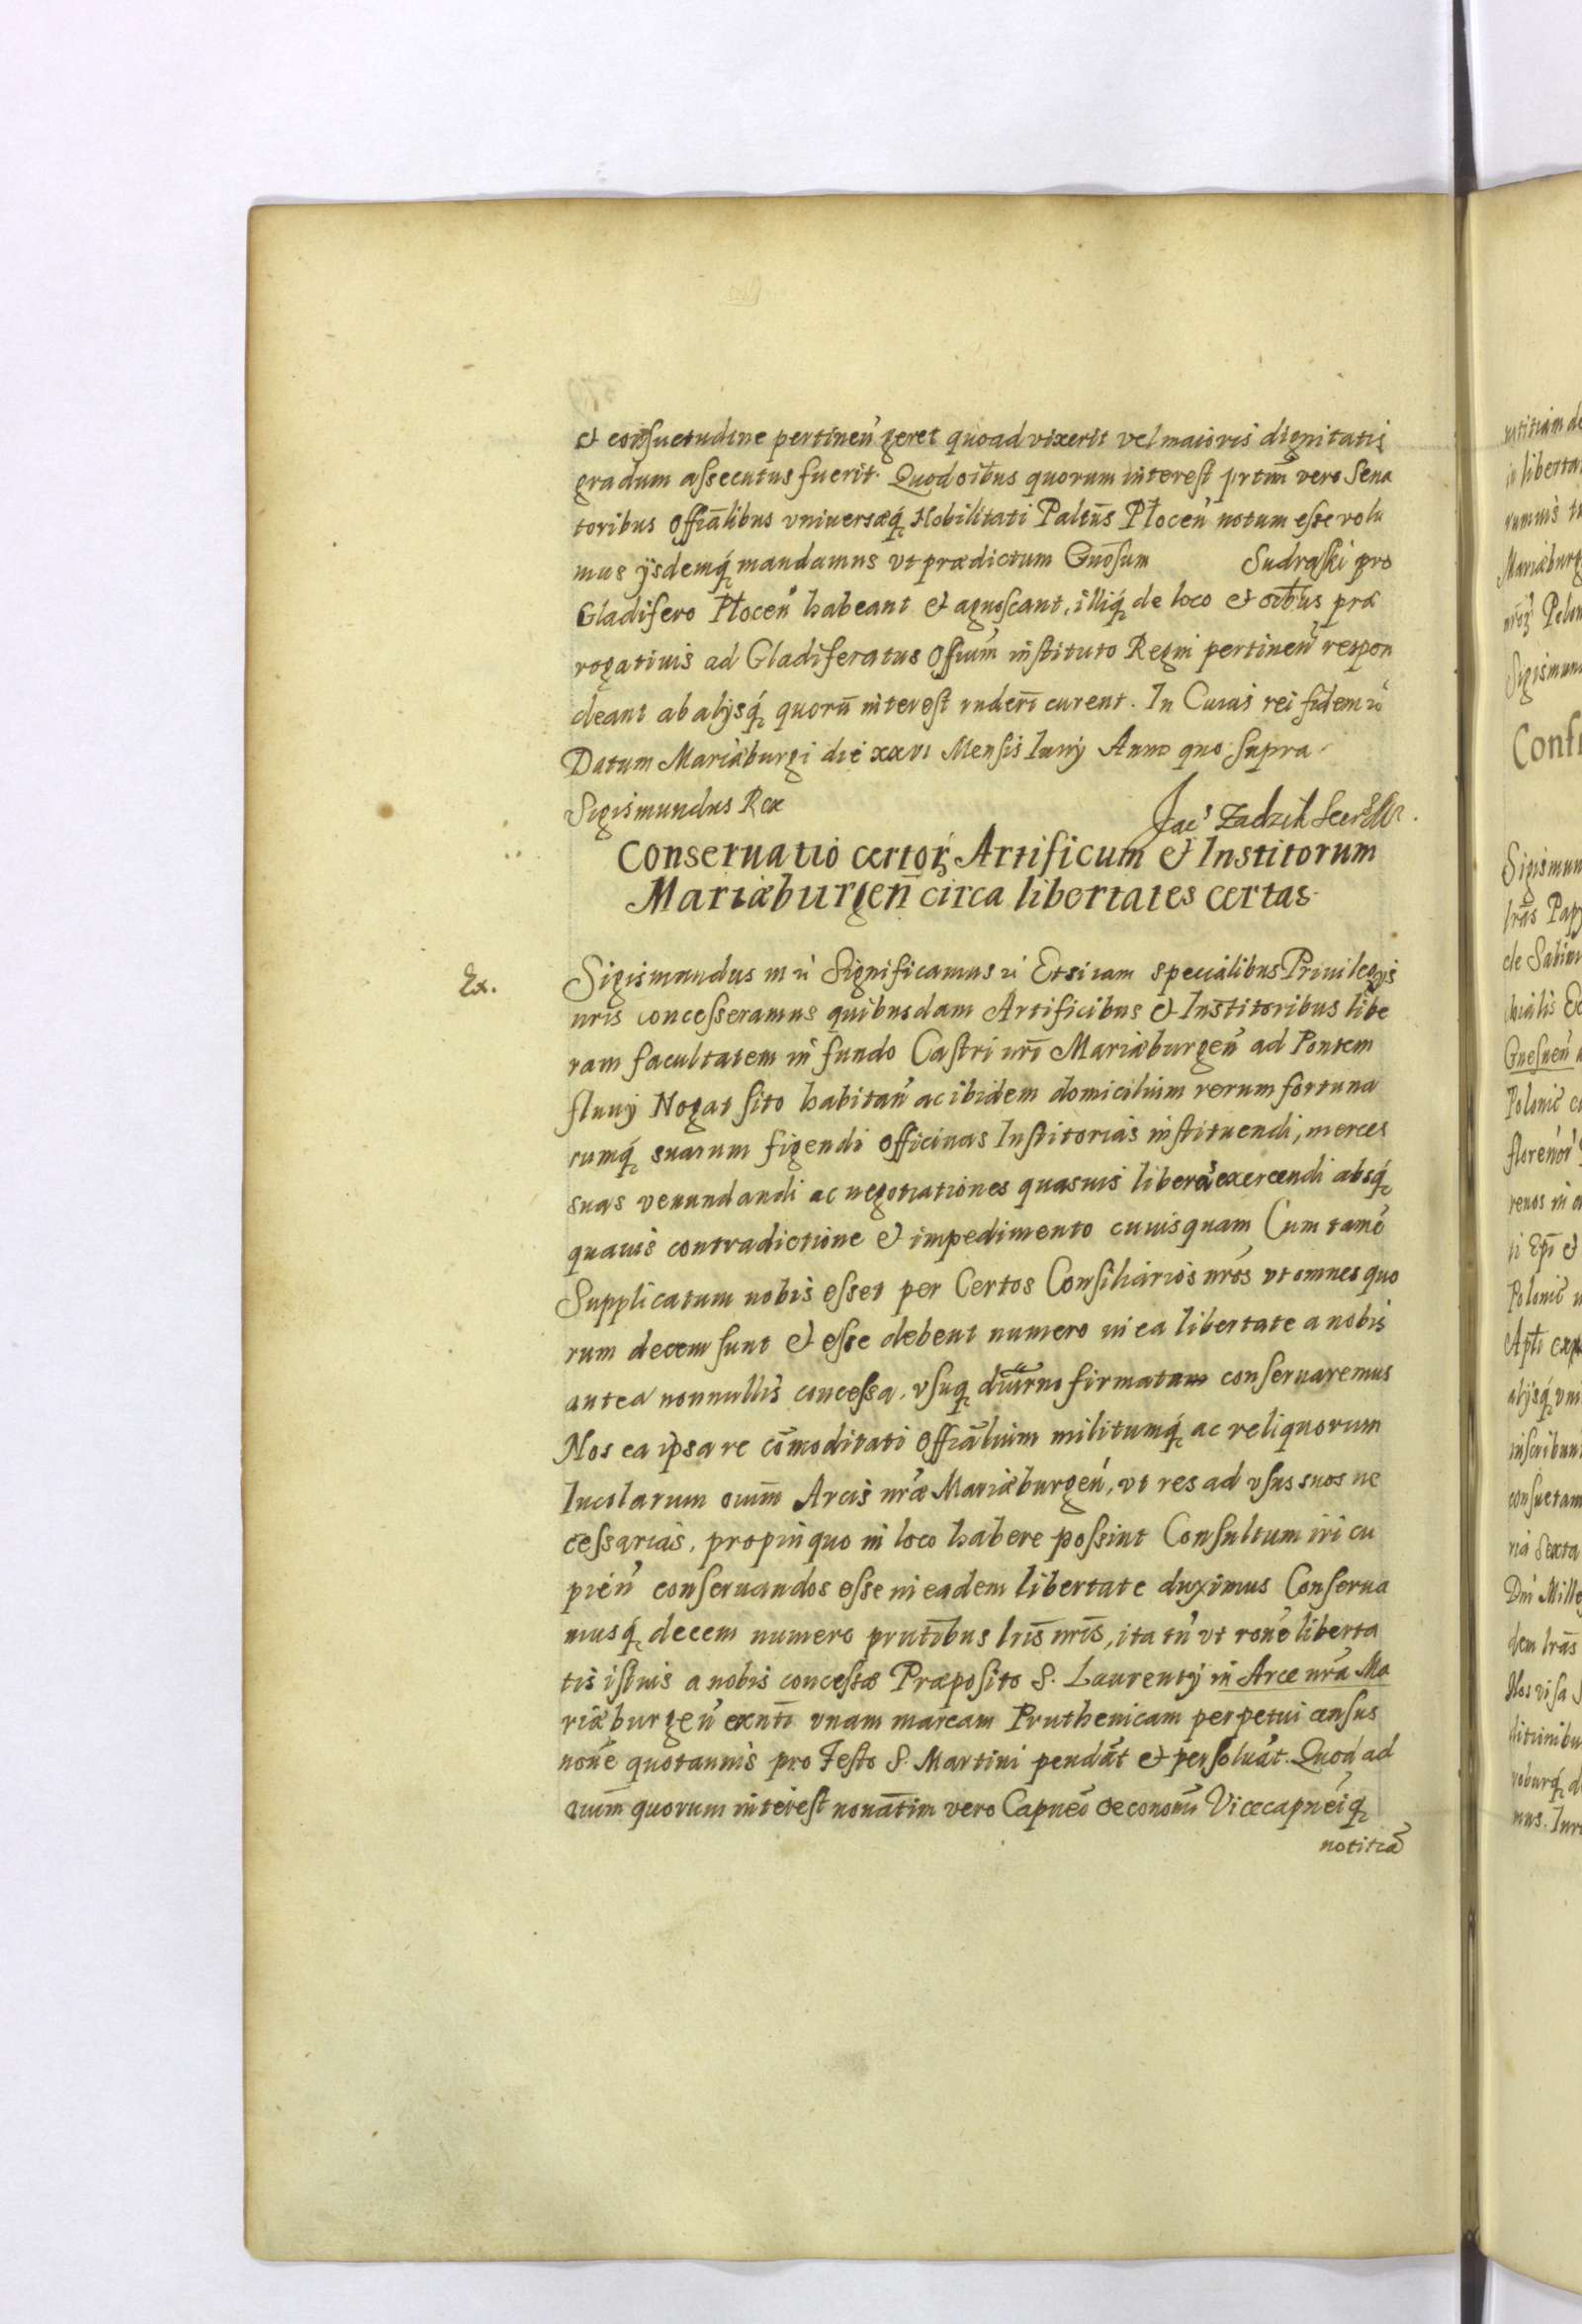 et consuetudine pertineñ geret quoad vixerit vel maioris dignitatis
gradum assecutus fuerit. Quod oĩbus quorum interest prtim vero Sena
toribus Offiãlibus vniversæq́ Nobilitati Paltũs Płoceñ notum esse volu
mus ijsdemq́ mandamus vt prædictum Gnõsum Sudraski pro
Gladifero Płoceñ habeant et agnoscant, illiq́ de loco et oĩbus præ
rogatiuis ad Gladiferatus Offium̃ instituto Regni pertineñ respon
deant ab alijsq́ quorũ interest rnderĩ curent. In Cuius rei fidem
Datum Mariæburgi die xxvi Mensis Iunij Anno quo supra.
Sigismundus Rex Jac' Zadzik Secr
Conseruatio certoŕ Artificum et Institorum
Mariæburgeñ circa libertates certas.
Ex.
Sigismundus Significamus Etsi iam specialibus Priuilegijs
nris concesseramus quibusdam Artificibus et Institoribus libe
ram facultatem in fundo Castri nrĩ Mariæburgeñ ad Pontem
fluuij Nogat sito habitañ ac ibidem domicilium rerum fortuna
rumq́ suarum figendi officinas Institorias instituendi, merces
suas venundandi ac negotiationes quasuis libere exercendi absq́
quauis contradictione et impedimento cuiusquam Cum tamẽ
Supplicatum nobis esset per Certos Consiliarios nrõs vt omnes quo
rum decem sunt et esse debent numero in ea libertate a nobis
antea nonnullis concessa, vsuq́ diuturno firmatam conseruaremus
Nos ea ipsa re cõmoditati Offiãlium militumq́ ac reliquorum
Incolarum oium̃ Arcis nrǽ Mariæburgeñ, vt res ad vsus suos ne
cessarias, propinquo in loco habere possint Consultum iri cu
pieñ conseruandos esse in eadem libertate duximus Conserua
musq́ decem numero prntĩbus lrĩs nrĩs, ita tñ vt rone liberta
tis istius a nobis concessæ Præposito S. Laurentij in Arce nrã Ma
riæburgeñ exntĩ vnam marcam Pruthenicam perpetui census
noñe quotannis pro Festo S. Martini pendãt et persoluãt. Quod ad
oium̃ quorum interest noñatim vero Capnẽo Oeconomõ Vicecapneiq́
notitiã